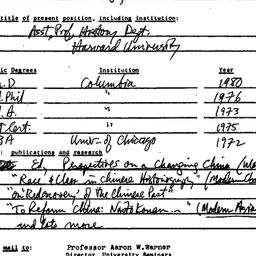 title of present position, including institution:
Asst. Prof, History Dept.
Harvard University
ic Degrees Institution Year
.D Columbia 1980
.Phil " 1976
.A. " 1973
Cert. " 1975
BA Univ. of Chicago 1972
: publications and research
Ed, Perspectives on a Changing China
"Race & Class in Chinese Historiography" (Modern
"On Rediscovery of the Chinese Past"
"To Reform China: Naito Konan..." (Modern Asia
and lots more
mail to: Professor Aaron W. Warner
Director, University Seminars